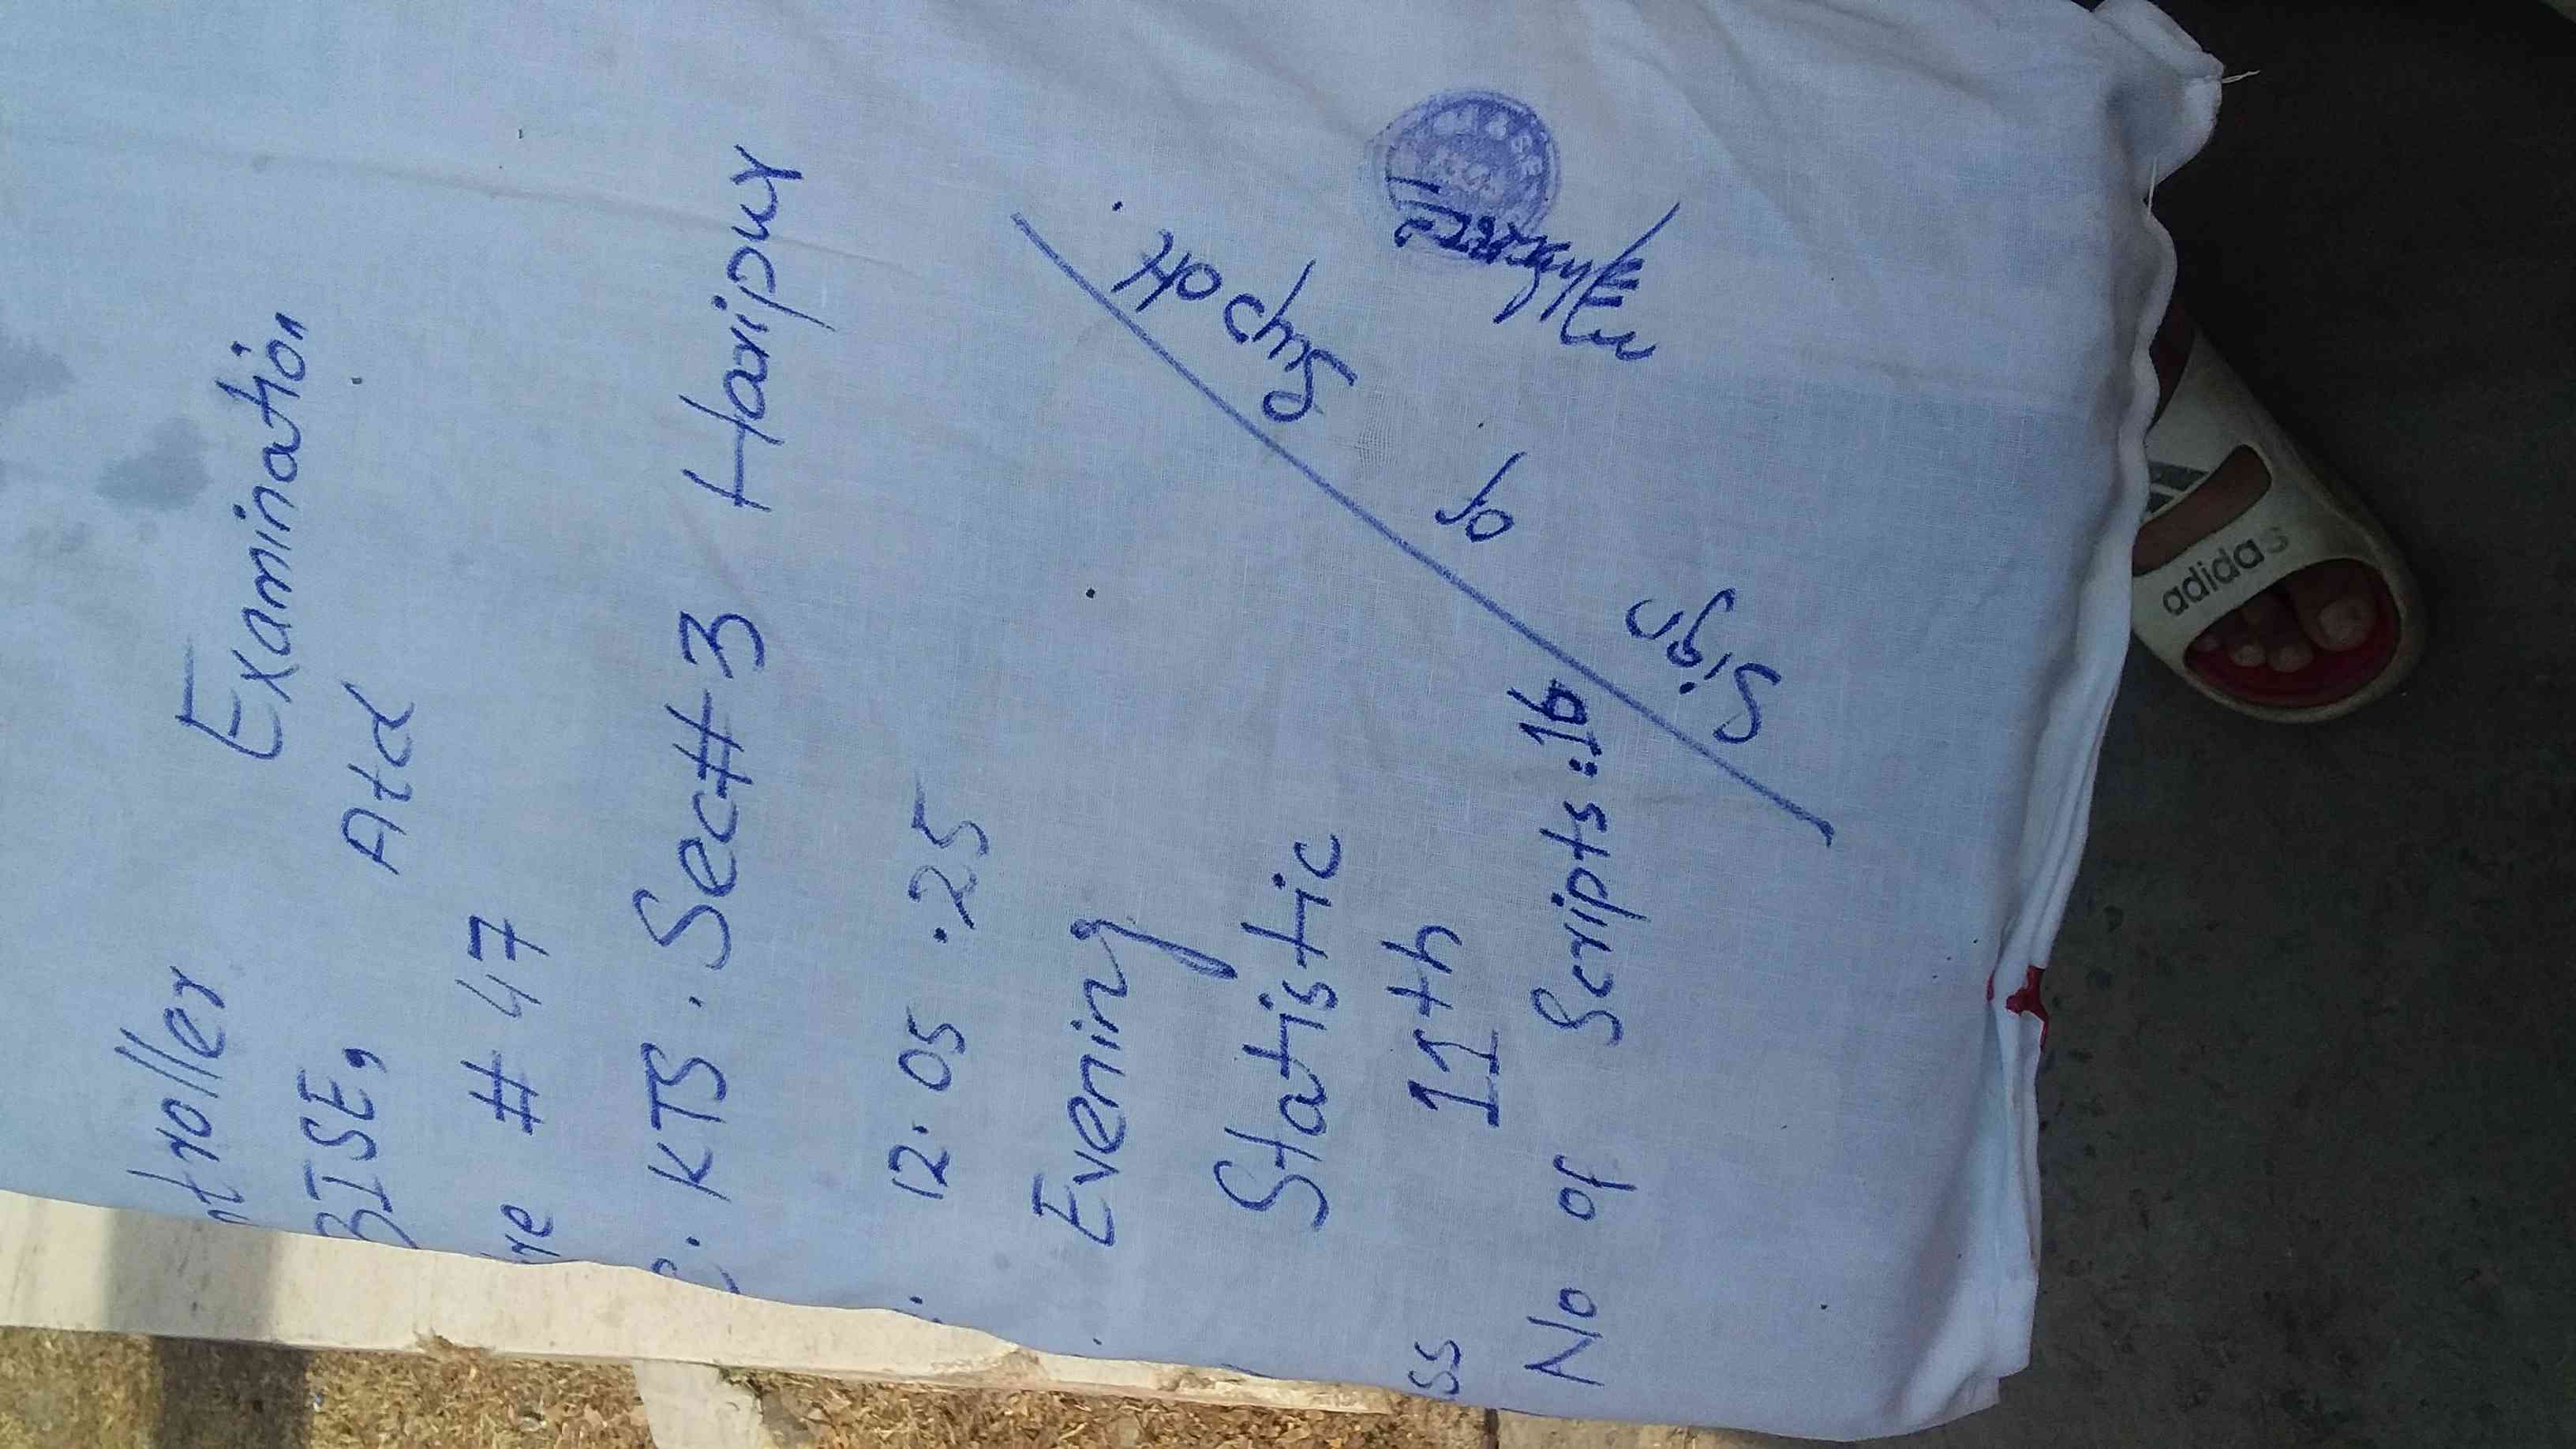 ntroller Examination
BISE, Atd
re # 47
. KTS . Sec # 3 Haripur
12.05.25
Evening
Statistic
ss 11th
No of Scripts :16
Sign of Supdt.
adidas